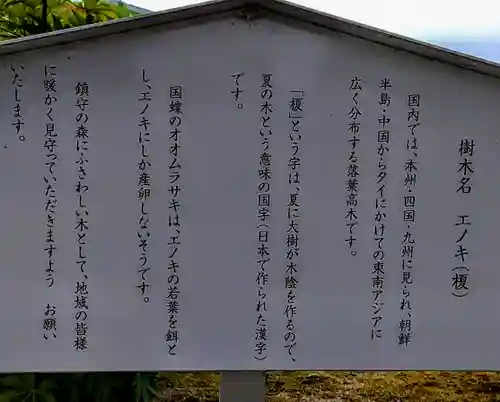 樹木名　エノキ(榎)
国内では、本州・四国・九州に見られ、朝鮮
半島・中国からタイにかけての東南アジアに
広く分布する落葉高木です。
「榎」という字は、夏に大樹が木陰を作るので、
夏の木という意味の国字(日本で作られた漢字)
です。
国蝶のオオムラサキは、エノキの若葉を餌と
し、エノキにしか産卵しないそうです。
鎮守の森にふさわしい木として、地域の皆様
に暖かく見守っていただきますよう　お願い
いたします。